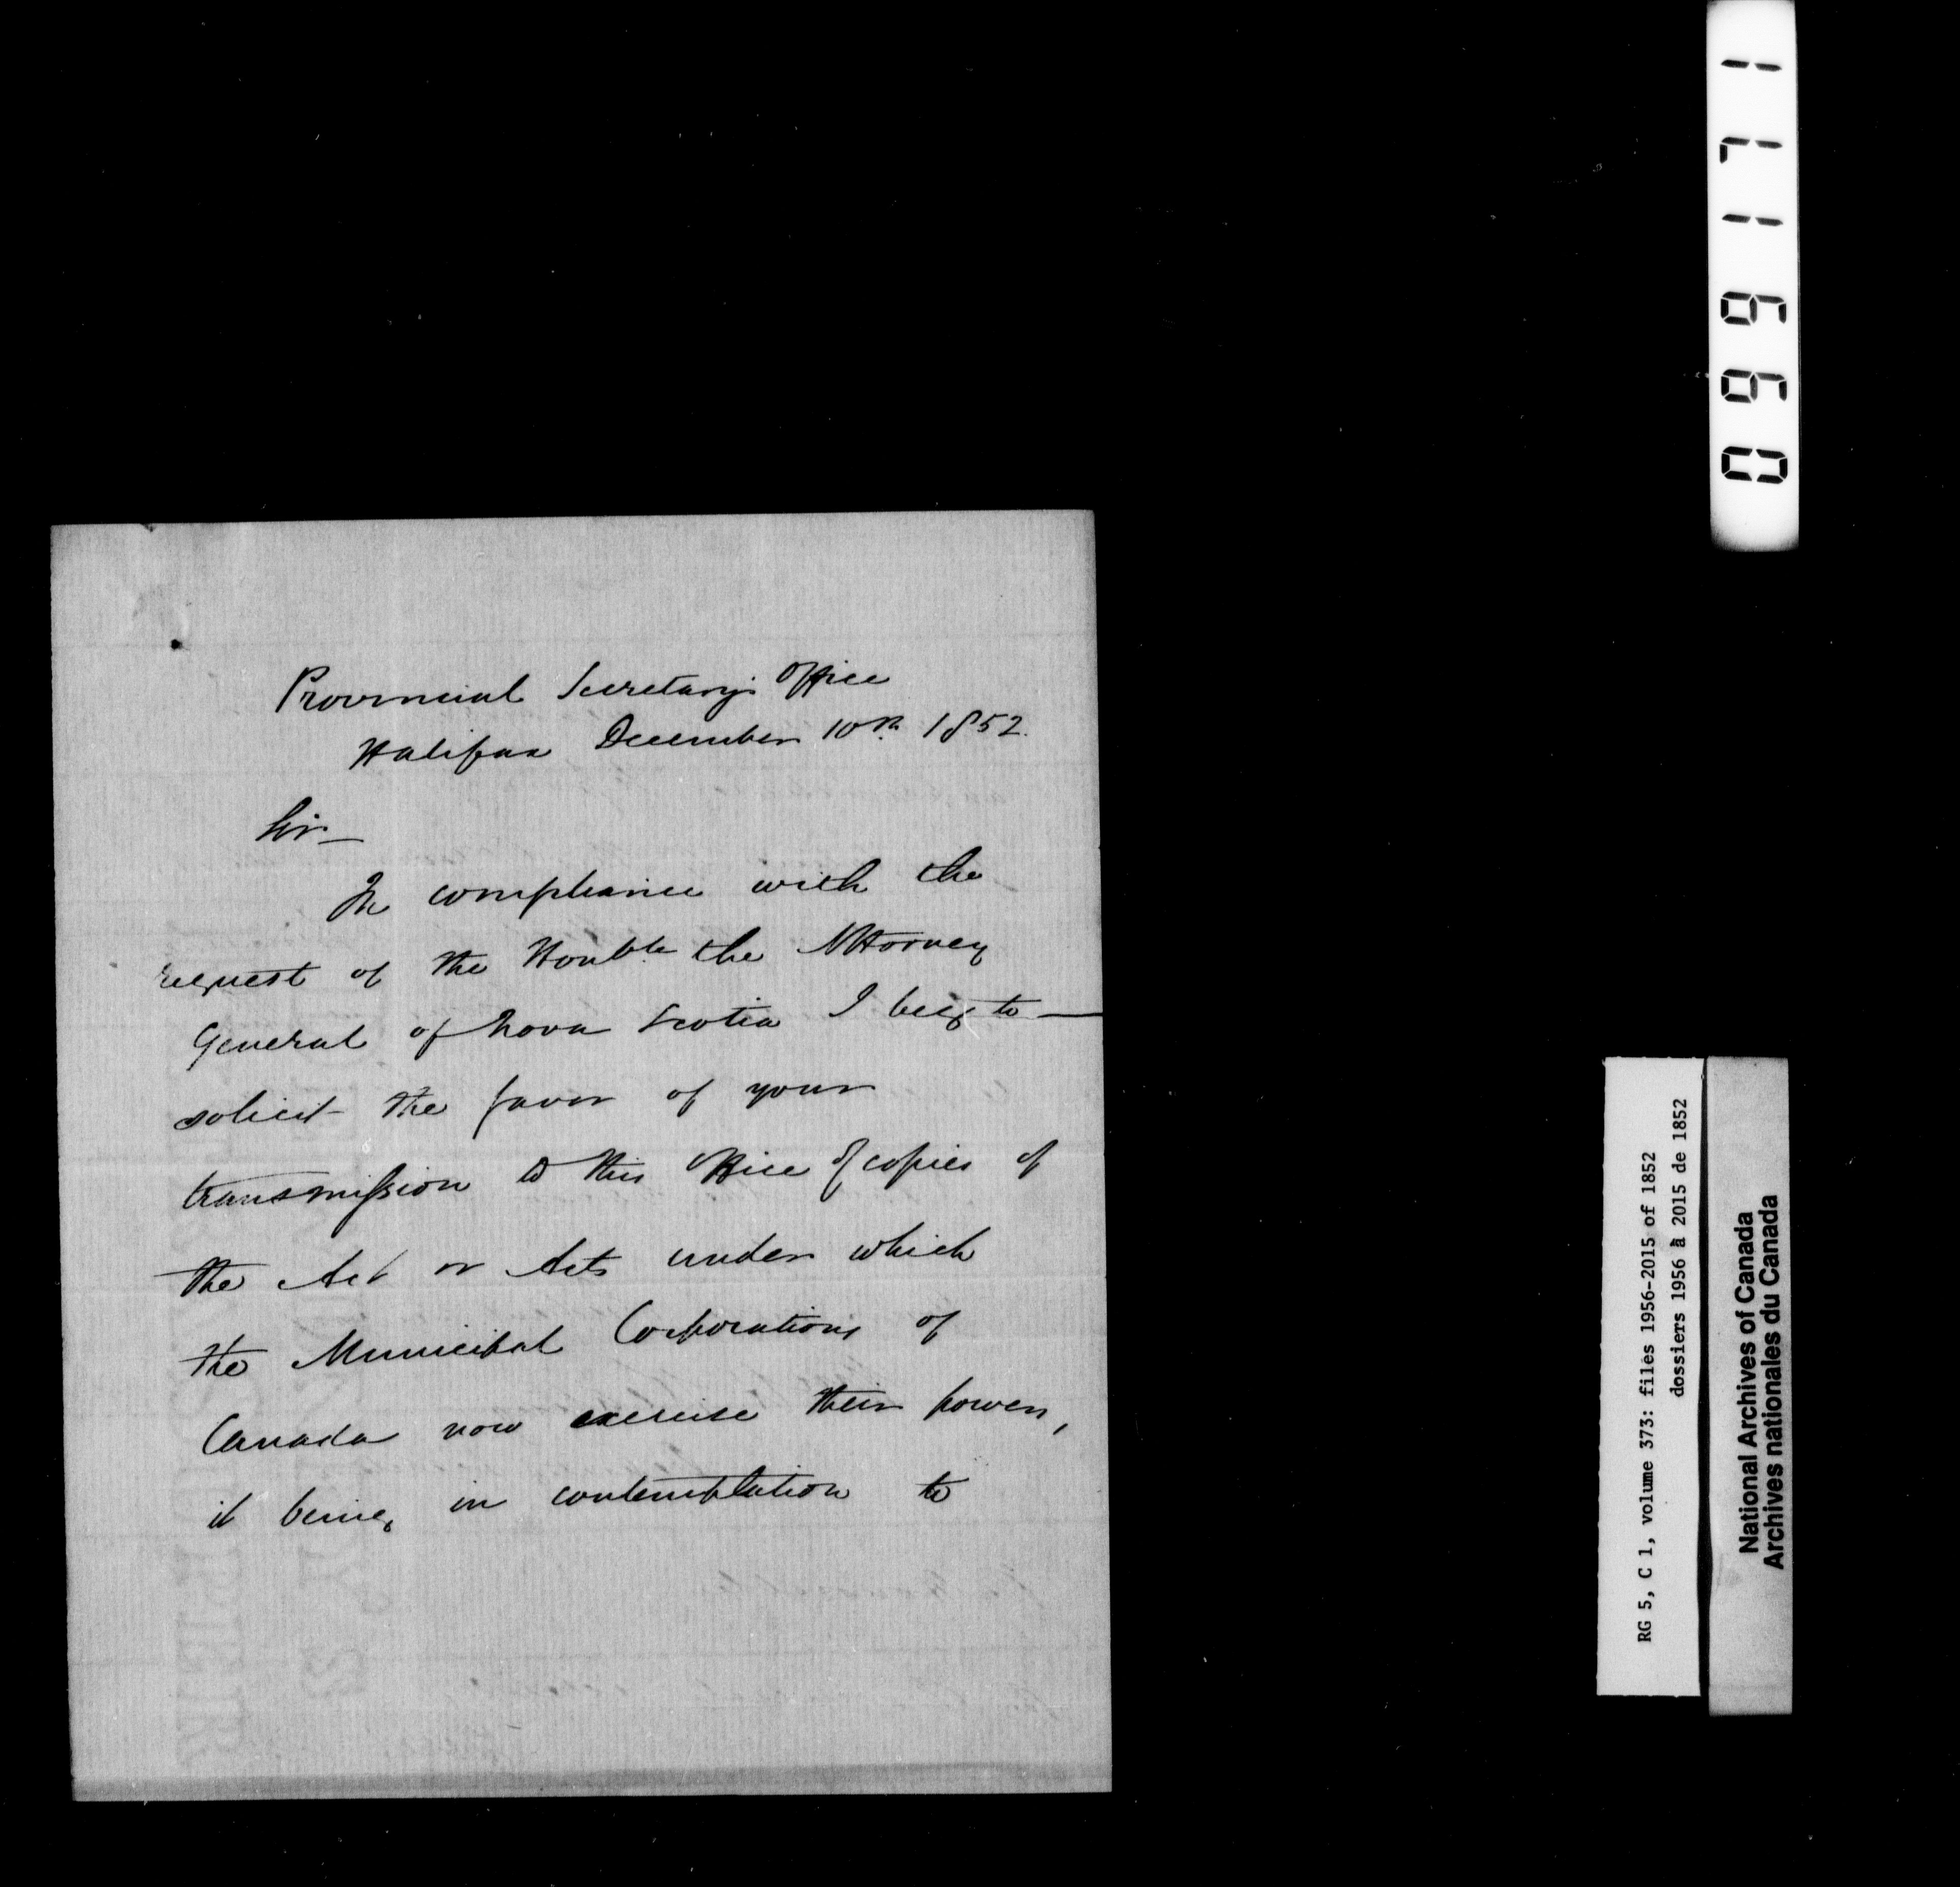 Provincial Secretary's Office
Halifax December 10th 1852.
Sir—
In compliance with the
request of the Honble the Attorney
General of Nova Scotia I beg to —
solicit the favor of your
transmission to this Office of copies of
the Act or Acts under which
the Municipal Corporations of
Canada now exercise their powers,
it being in contemplation to
096171
RG 5, C 1, volume 373: files 1956-2015 of 1852
dossiers 1956 à 2015 de 1852
National Archives of Canada
Archives nationales du Canada